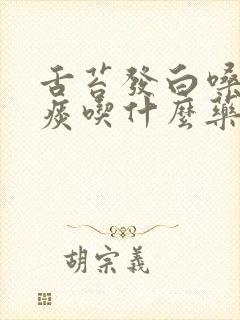 舌苔發白嗓
痰喫什麼藥
胡宗義